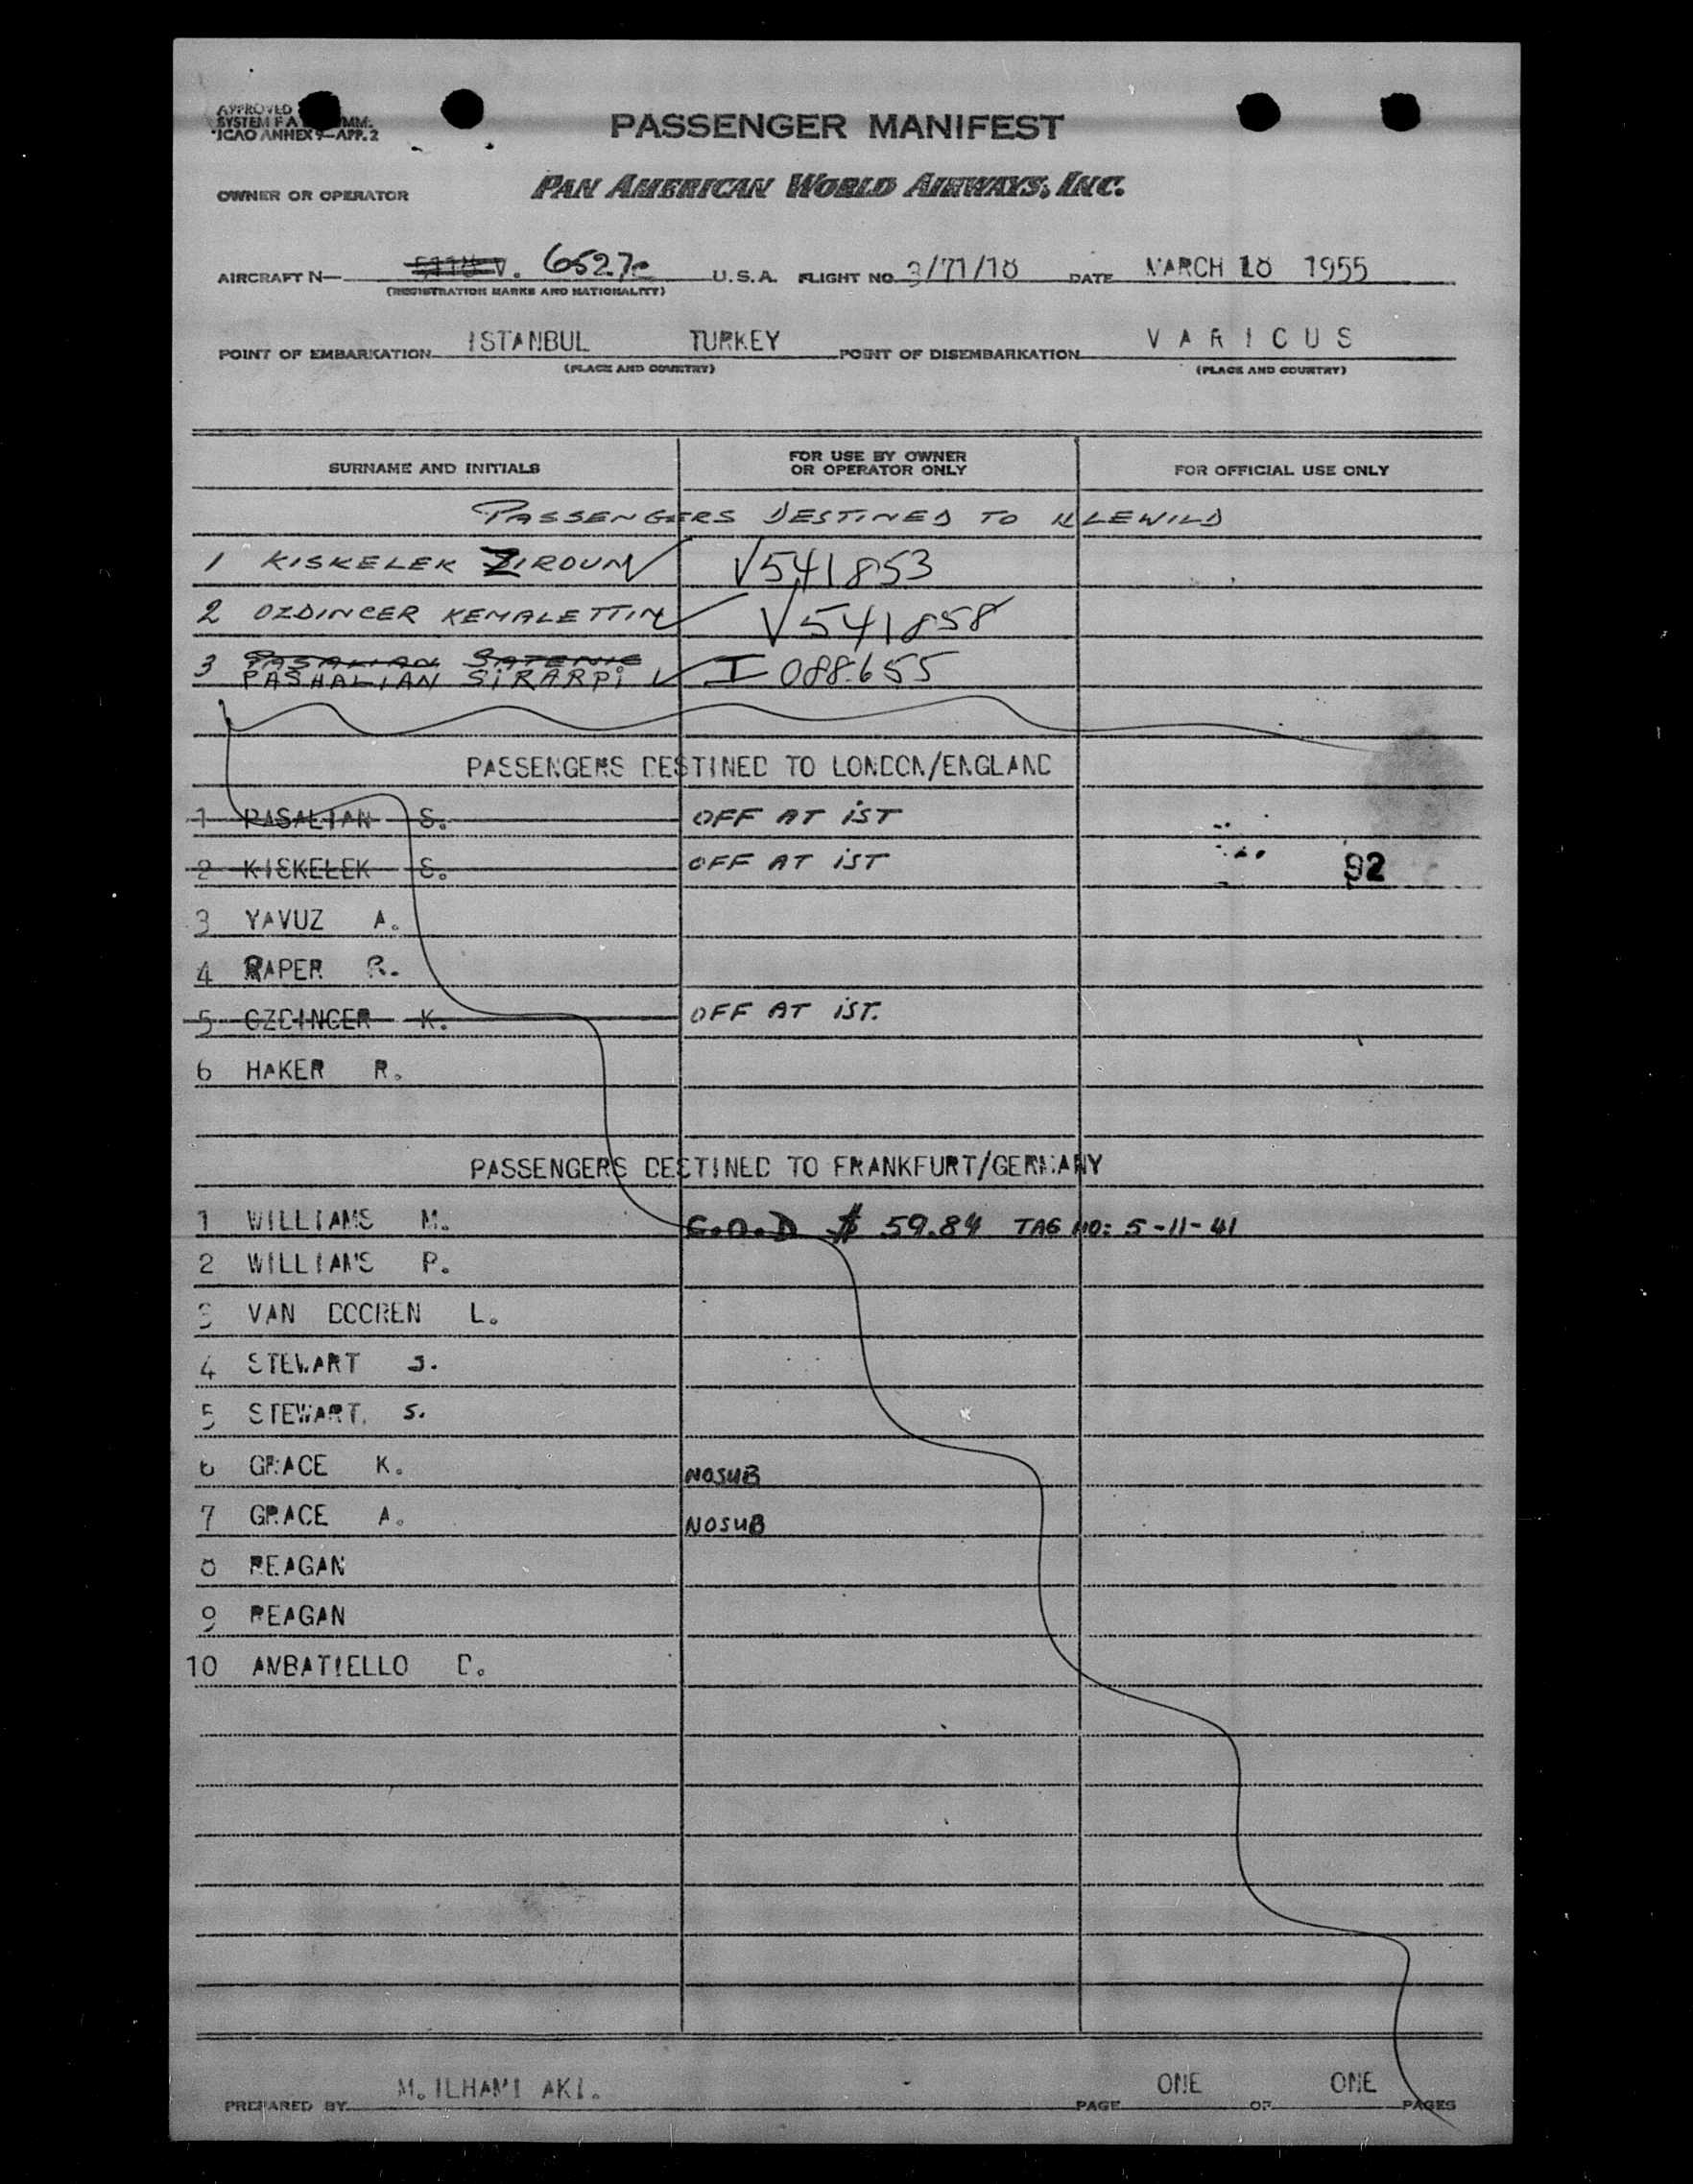 APPROVED
SYSTEM F A MM.
ICAO ANNEX 9—APP. 2
PASSENGER MANIFEST
OWNER OR OPERATOR PAN AMERICAN WORLD AIRWAYS, INC.
AIRCRAFT N— V. 6527c U.S.A. FLIGHT NO. 3/71/18 DATE MARCH 18 1955
(REGISTRATION MARKS AND NATIONALITY)
POINT OF EMBARKATION ISTANBUL TURKEY POINT OF DISEMBARKATION VARIOUS
(PLACE AND COUNTRY) (PLACE AND COUNTRY)
SURNAME AND INITIALS FOR USE BY OWNER OR OPERATOR ONLY FOR OFFICIAL USE ONLY
PASSENGERS DESTINED TO IDLEWILD
1 KISKELEK ZIROUM V541853
2 OZDINCER KEMALETTIN V541858
3 PASALIAN SATENIC
PASHALIAN SIRARPI I 088655
PASSENGERS DESTINED TO LONDON/ENGLAND
1 PASALIAN S. OFF AT IST
2 KISKELEK S. OFF AT IST
92
3 YAVUZ A.
4 RAPER R.
5 OZDINCER K. OFF AT IST.
6 HAKER R.
PASSENGERS DESTINED TO FRANKFURT/GERMANY
1 WILLIAMS M. C.O.D $ 59.84 TAG NO: 5-11-41
2 WILLIAMS P.
3 VAN DOOREN L.
4 STEWART J.
5 STEWART. S.
6 GRACE K. NOSUB
7 GRACE A. NOSUB
8 REAGAN
9 REAGAN
10 AMBATIELLO D.
PREPARED BY M. ILHAMI AKI. PAGE ONE OF ONE PAGES